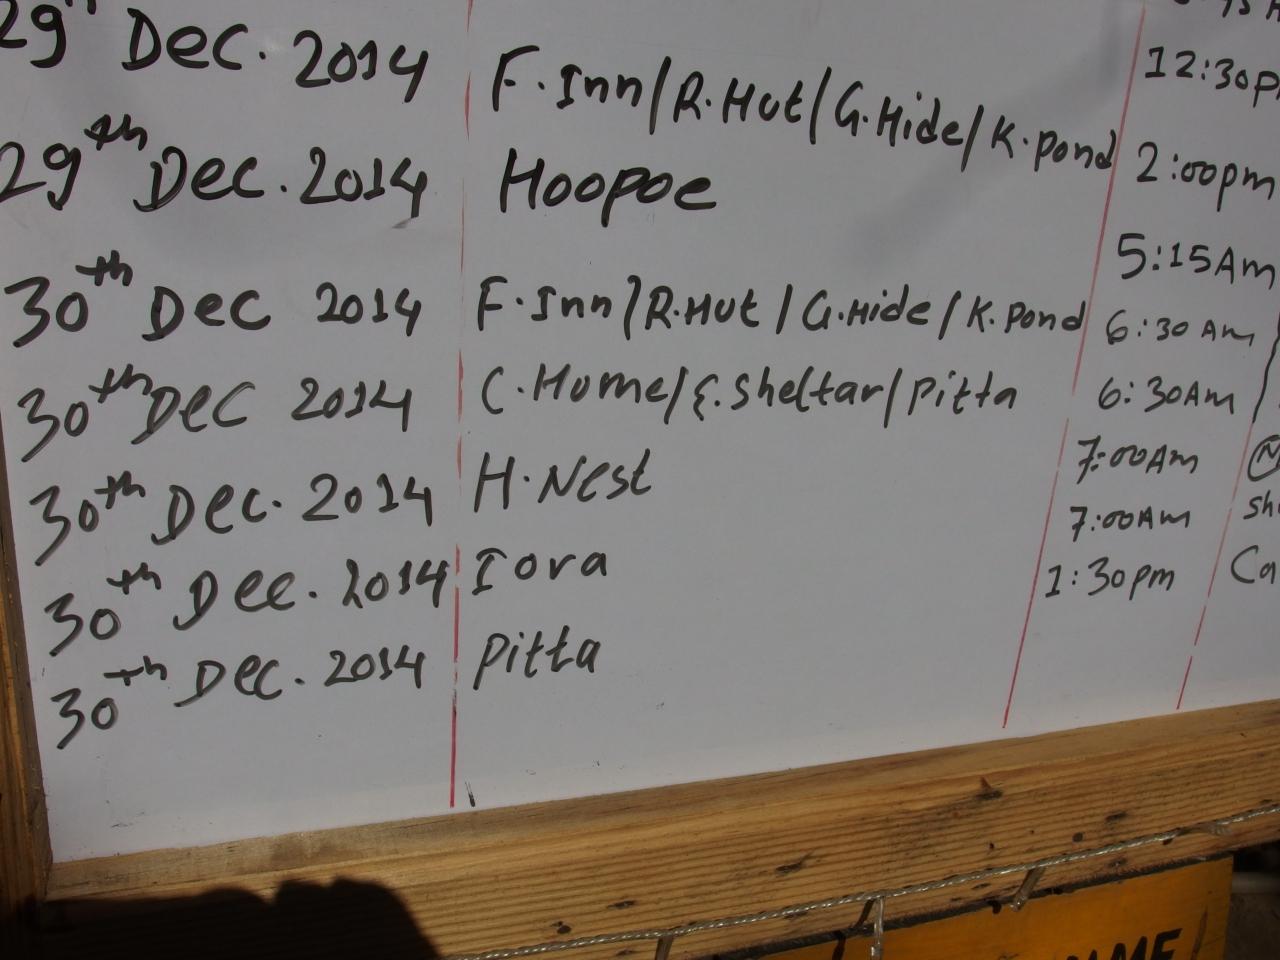 12:30p
29th Dec. 2014 F.Inn/R.Hut/G.Hide/K.pond 2:00pm
29th Dec. 2014 Hoopoe 5:15Am
30th Dec 2014 F.Inn/R.Hut/G.Hide/K.pond 6:30Am
30th Dec 2014 C.Home/E.Sheltar/Pitta 6:30Am
30th Dec. 2014 H.Nest 7:00Am
30th Dec. 2014 Iora 7:00Am Sh
30th Dec. 2014 Pitta 1:30pm Ca